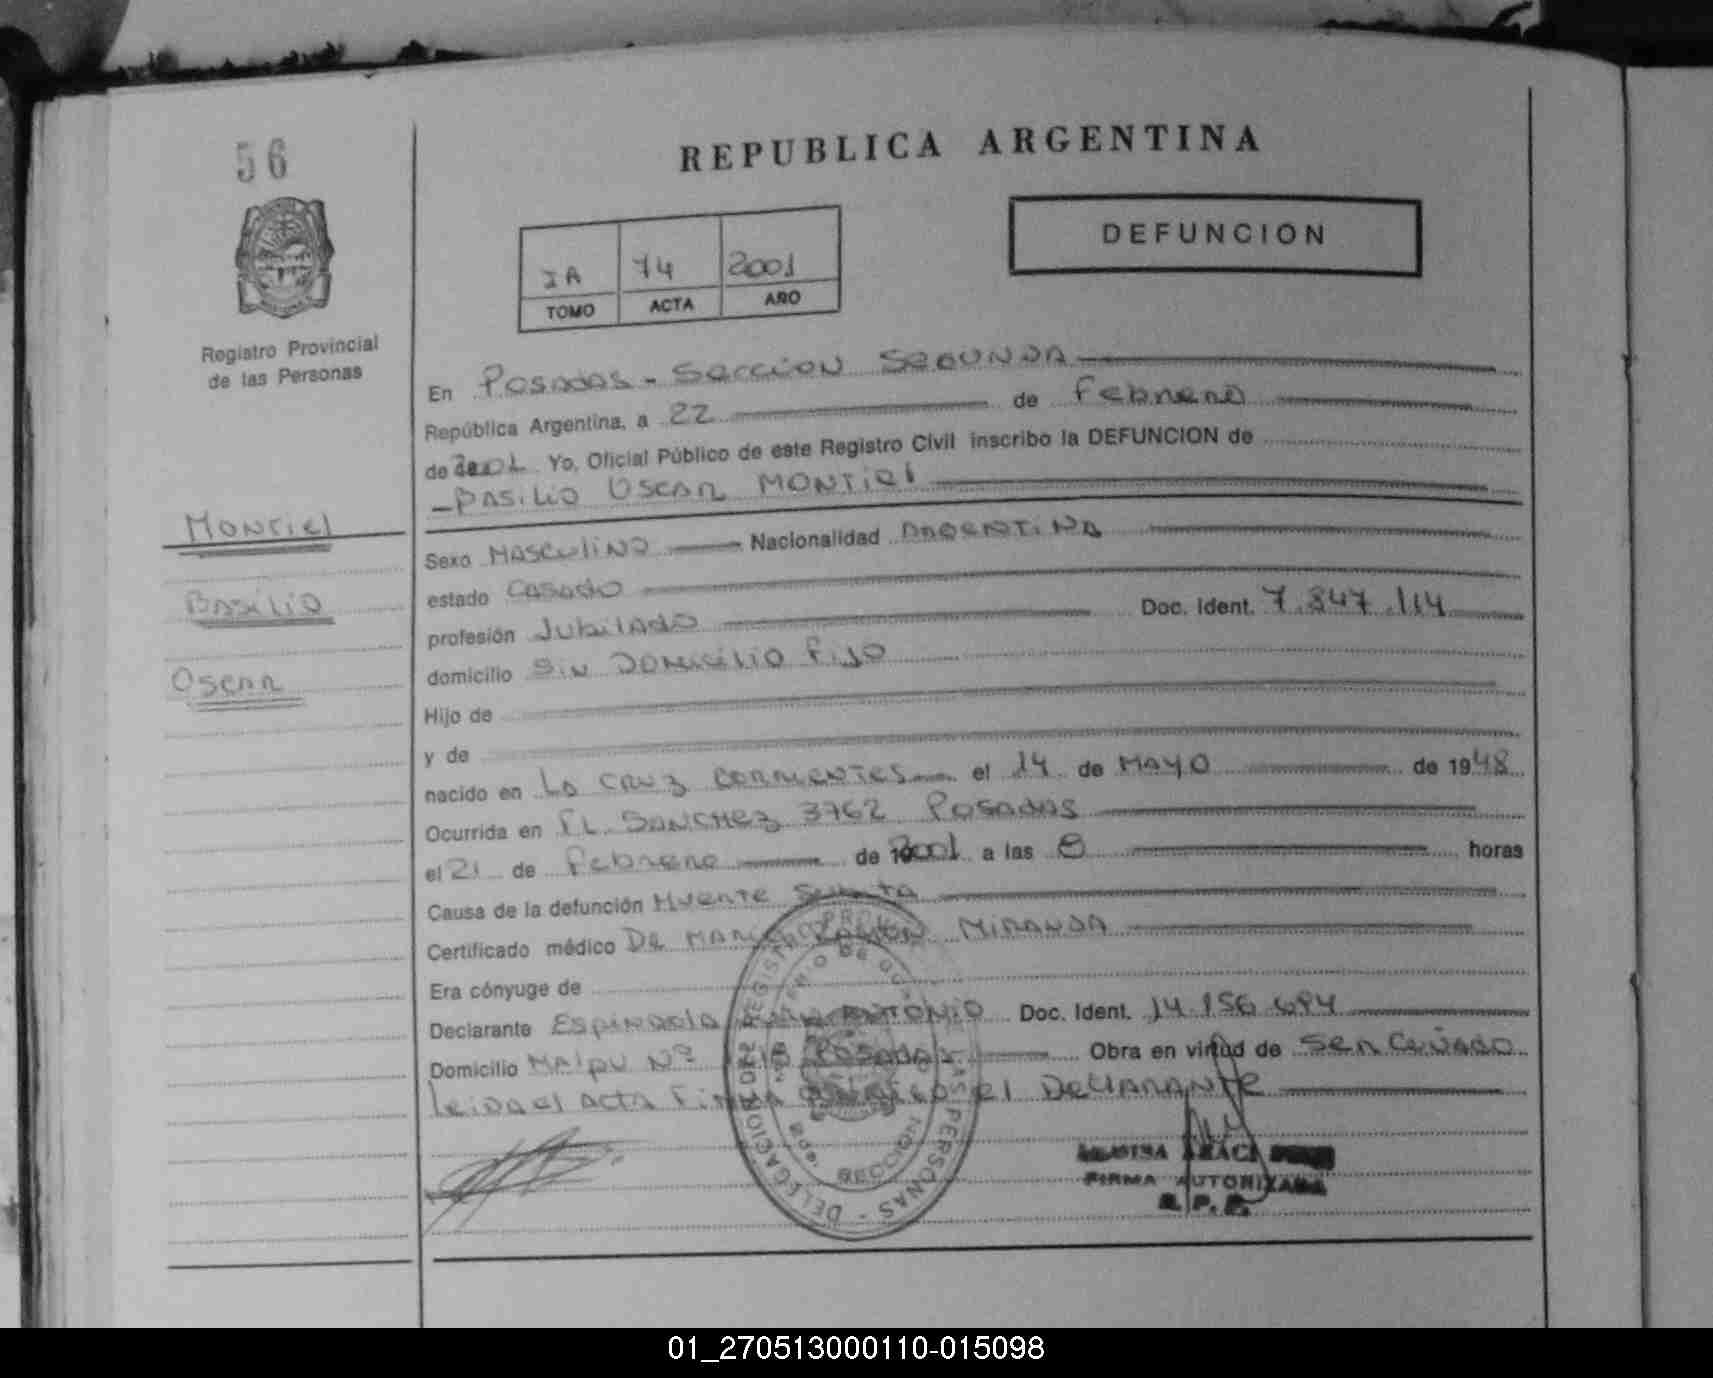 56
REPUBLICA ARGENTINA
DEFUNCION
IA 74 2001
TOMO ACTA AÑO
Registro Provincial
de las Personas
En Posadas - Seccion Segunda
República Argentina, a 22 de Febrero
de 2001 Yo, Oficial Público de este Registro Civil inscribo la DEFUNCION de
- BASiLio OSCAR MONTiel
Montiel
Basilio
Oscar
Sexo Masculino Nacionalidad Argentina
estado Casado
profesión Jubilado Doc. Ident. 7.847.114
domicilio Sin Domicilio Fijo
Hijo de
y de
nacido en La Cruz Corrientes el 14 de MAYO de 1948
Ocurrida en FL. Sanchez 3762 Posadas
el 21 de Febrero de 2001 a las 8 horas
Causa de la defunción Muerte Subita
Certificado médico DR MARIO RAMON MIRANDA
Era cónyuge de
Declarante Espindola ANTONIO Doc. Ident. 14.156.694
Domicilio Maipu Nº Posadas Obra en virtud de Ser Cuñado
leida el Acta Firma conmigo el Declarante
DELEGACION REGISTRO PERSONAS
FIRMA AUTORIZADA
R. P. P.
01_270513000110-015098